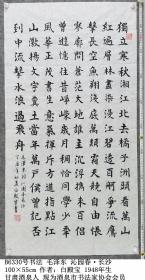 獨立寒秋湘江北去橘子洲頭看萬山
紅遍層林盡染漫江碧透百舸爭流鷹
擊長空魚翔淺底萬類霜天競自由悵
寥廓問蒼茫大地誰主沉浮攜來百侶
曾遊憶往昔崢嶸歲月稠恰同學少年
風華正茂書生意氣揮斥方遒指點江
山激揚文字糞土當年萬戶侯曾記否
到中流擊水浪遏飛舟
B6330号书法 毛泽东 沁园春·长沙
100×55cm 作者：白殿宝 1948年生
甘肃酒泉人 现为酒泉市书法家协会会员